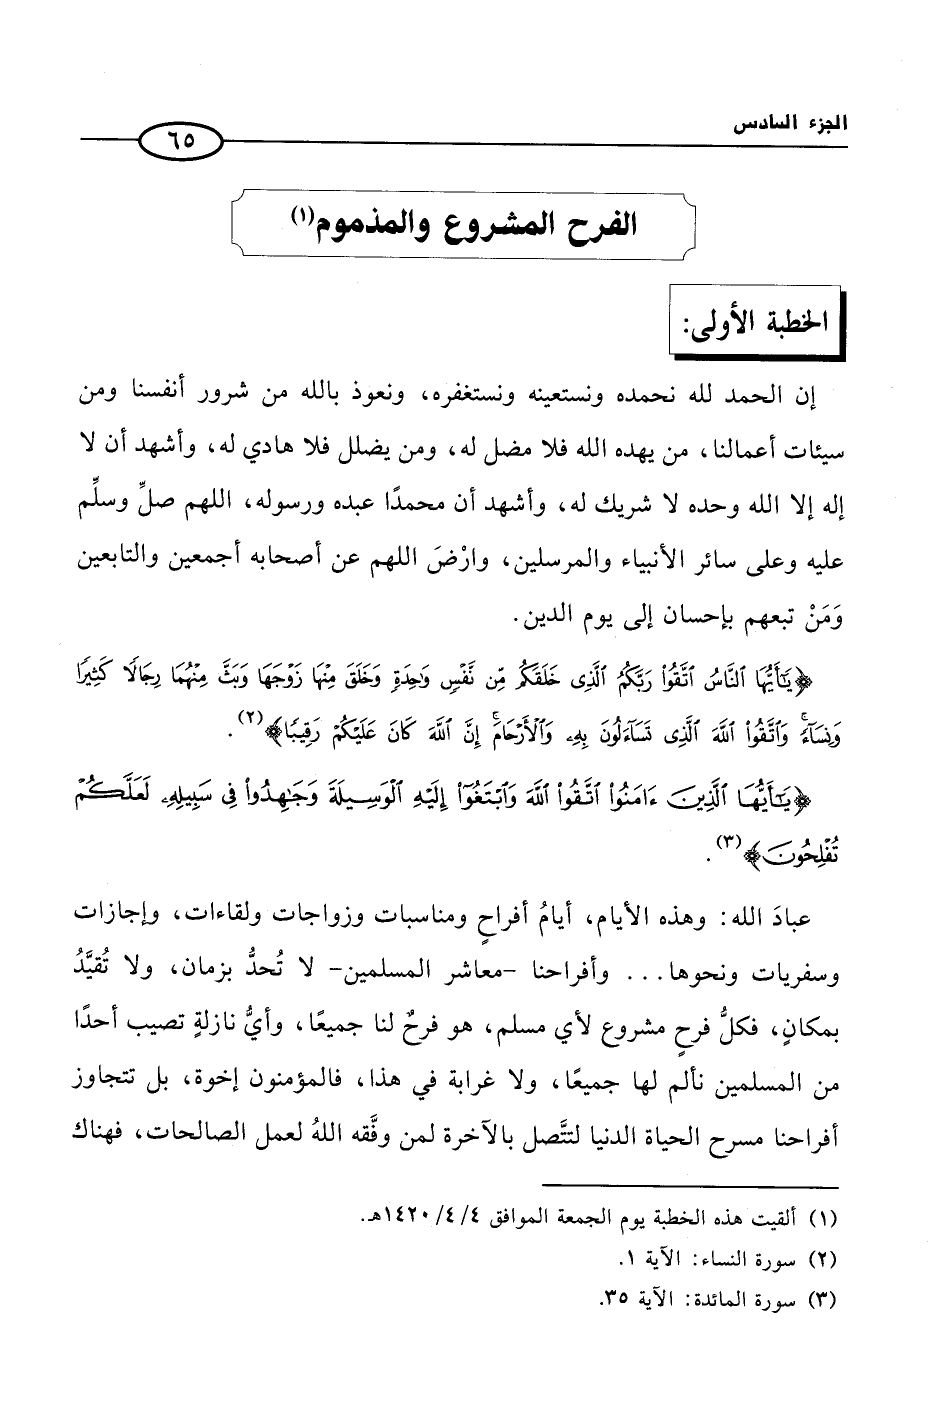 الجزء السادس
٦٥
الفرح المشروع والمذموم(١)
الخطبة الأولى:
إن الحمد لله نحمده ونستعينه ونستغفره، ونعوذ بالله من شرور أنفسنا ومن
سيئات أعمالنا، من يهده الله فلا مضل له، ومن يضلل فلا هادي له، وأشهد أن لا
إله إلا الله وحده لا شريك له، وأشهد أن محمدًا عبده ورسوله، اللهم صلِّ وسلِّم
عليه وعلى سائر الأنبياء والمرسلين، وارْضَ اللهم عن أصحابه أجمعين والتابعين
وَمَنْ تبعهم بإحسان إلى يوم الدين.
﴿يَٰٓأَيُّهَا ٱلنَّاسُ ٱتَّقُوا۟ رَبَّكُمُ ٱلَّذِى خَلَقَكُم مِّن نَّفْسٍ وَٰحِدَةٍ وَخَلَقَ مِنْهَا زَوْجَهَا وَبَثَّ مِنْهُمَا رِجَالًا كَثِيرًا
وَنِسَآءً ۚ وَٱتَّقُوا۟ ٱللَّهَ ٱلَّذِى تَسَآءَلُونَ بِهِۦ وَٱلْأَرْحَامَ ۚ إِنَّ ٱللَّهَ كَانَ عَلَيْكُمْ رَقِيبًا﴾(٢).
﴿يَٰٓأَيُّهَا ٱلَّذِينَ ءَامَنُوا۟ ٱتَّقُوا۟ ٱللَّهَ وَٱبْتَغُوٓا۟ إِلَيْهِ ٱلْوَسِيلَةَ وَجَٰهِدُوا۟ فِى سَبِيلِهِۦ لَعَلَّكُمْ
تُفْلِحُونَ﴾(٣).
عبادَ الله: وهذه الأيام، أيامُ أفراحٍ ومناسبات وزواجات ولقاءات، وإجازات
وسفريات ونحوها... وأفراحنا -معاشر المسلمين- لا تُحدُّ بزمان، ولا تُقيَّدُ
بمكانٍ، فكلُّ فرحٍ مشروع لأي مسلم، هو فرحٌ لنا جميعًا، وأيُّ نازلةٍ تصيب أحدًا
من المسلمين نألم لها جميعًا، ولا غرابة في هذا، فالمؤمنون إخوة، بل تتجاوز
أفراحنا مسرح الحياة الدنيا لتتَّصل بالآخرة لمن وفَّقه اللهُ لعمل الصالحات، فهناك
(١) ألقيت هذه الخطبة يوم الجمعة الموافق ١٤٢٠/٤/٤هـ.
(٢) سورة النساء: الآية ١.
(٣) سورة المائدة: الآية ٣٥.